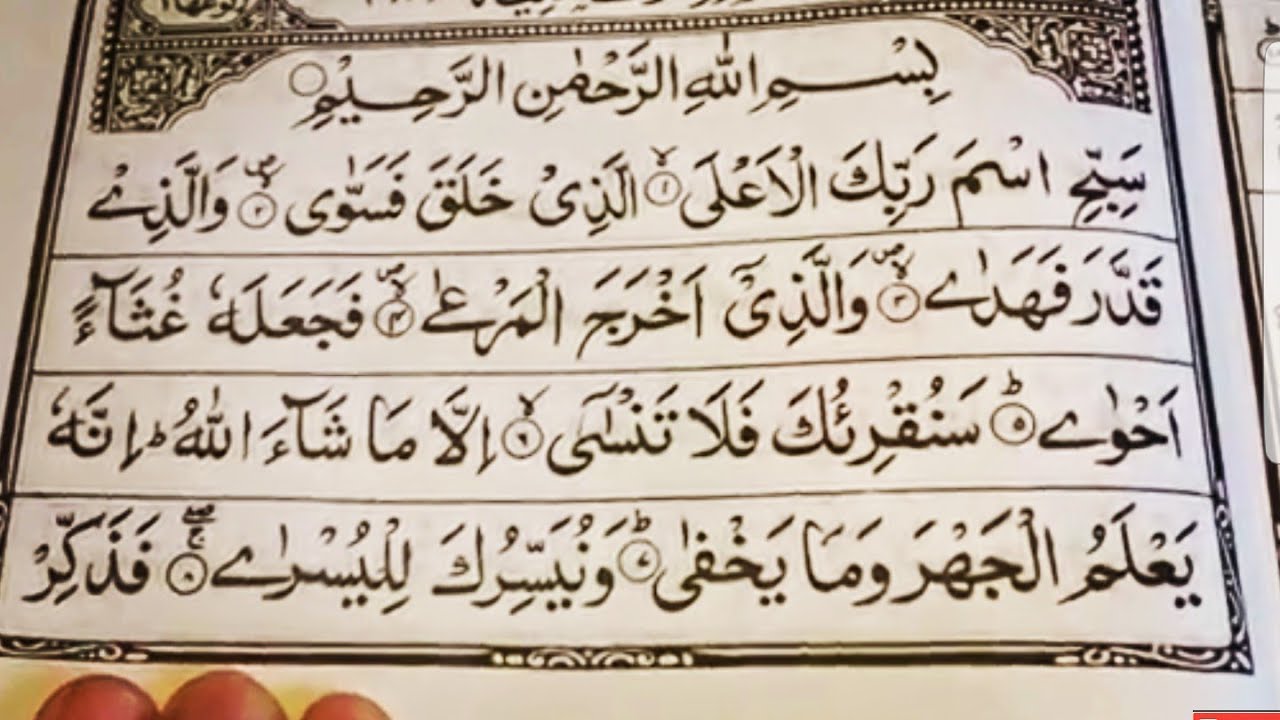 بِسْمِ اللهِ الرَّحْمٰنِ الرَّحِيْمِ
سَبِّحِ اسْمَ رَبِّكَ الْاَعْلَى ۙ﴿۱﴾ الَّذِىْ خَلَقَ فَسَوّٰى ۪ۙ﴿۲﴾ وَالَّذِىْ
قَدَّرَ فَهَدٰى ۪ۙ﴿۳﴾ وَالَّذِىْۤ اَخْرَجَ الْمَرْعٰى ۪ۙ﴿۴﴾ فَجَعَلَهٗ غُثَآءً
اَحْوٰى ؕ﴿۵﴾ سَنُقْرِئُكَ فَلَا تَنْسٰٓى ۙ﴿۶﴾ اِلَّا مَا شَآءَ اللهُ ؕ اِنَّهٗ
يَعْلَمُ الْجَهْرَ وَمَا يَخْفٰى ؕ﴿۷﴾ وَنُيَسِّرُكَ لِلْيُسْرٰى ۚۖ﴿۸﴾ فَذَكِّرْ